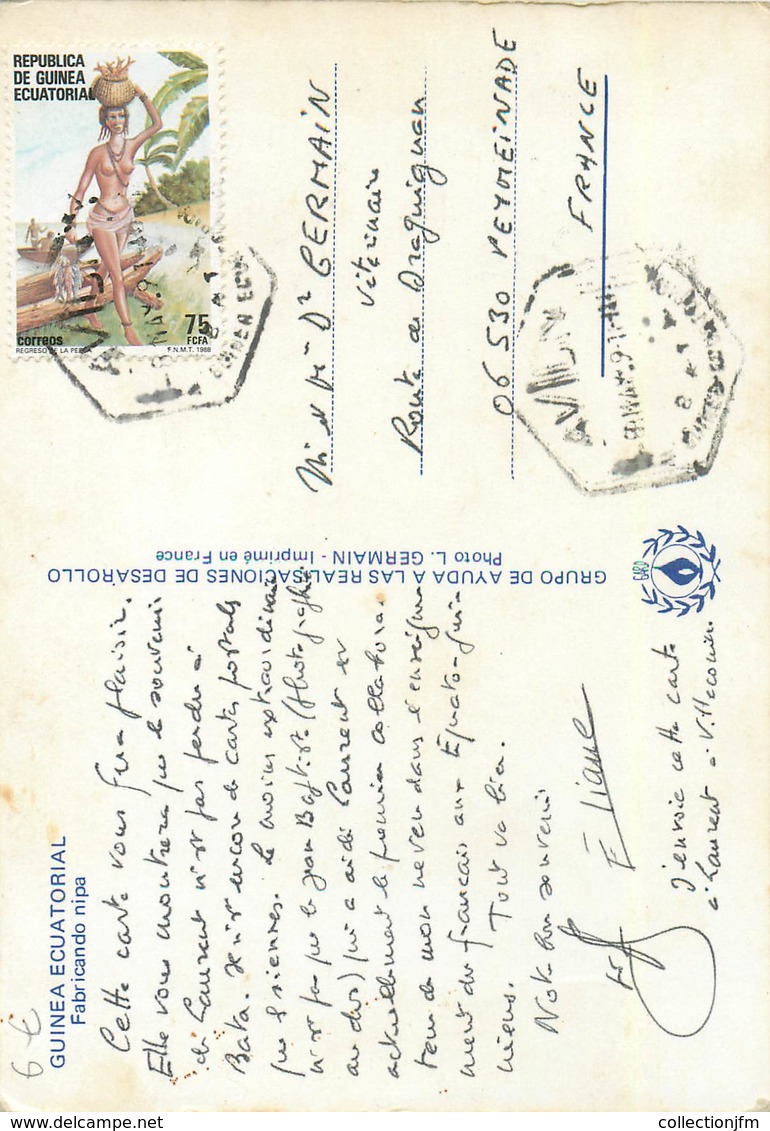 REPUBLICA
DE GUINEA
ECUATORIAL
correos
75
FCFA
REGRESO DE LA PESCA
F.N.M.T. 1988
GERMAIN
Vétérinaire
Route de Draguignan
06 530 PEYMEINADE
FRANCE
GRUPO DE AYUDA A LAS REALISACIONES DE DESAROLLO
Photo L. GERMAIN - Imprimé en France
GARD
GUINEA ECUATORIAL
Fabricando nipa
6 €
Cette carte vous fera plaisir.
Elle vous montrera que le souvenir
de Laurent n'est pas perdu à
Bata. Il n'est encore de cartes postales
que les siennes. Le moins extraordinaire
n'est pas que le Jean Baptiste (Photographie
au dos) qui a aidé Laurent est
actuellement le premier collabora-
teur de mon neveu dans l'enseigne-
ment du français aux Equato-guin-
néens. Tout va bien.
Notre bon souvenir
Eliane
J'envoie cette carte
à Laurent à
collectionjfm